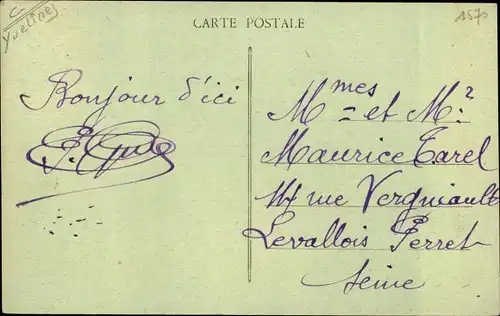 Yvelines
CARTE POSTALE
1570
Bonjour d'ici
Mmes et Mr
Maurice Tarel
rue Vergniault
Levallois Perret
Seine